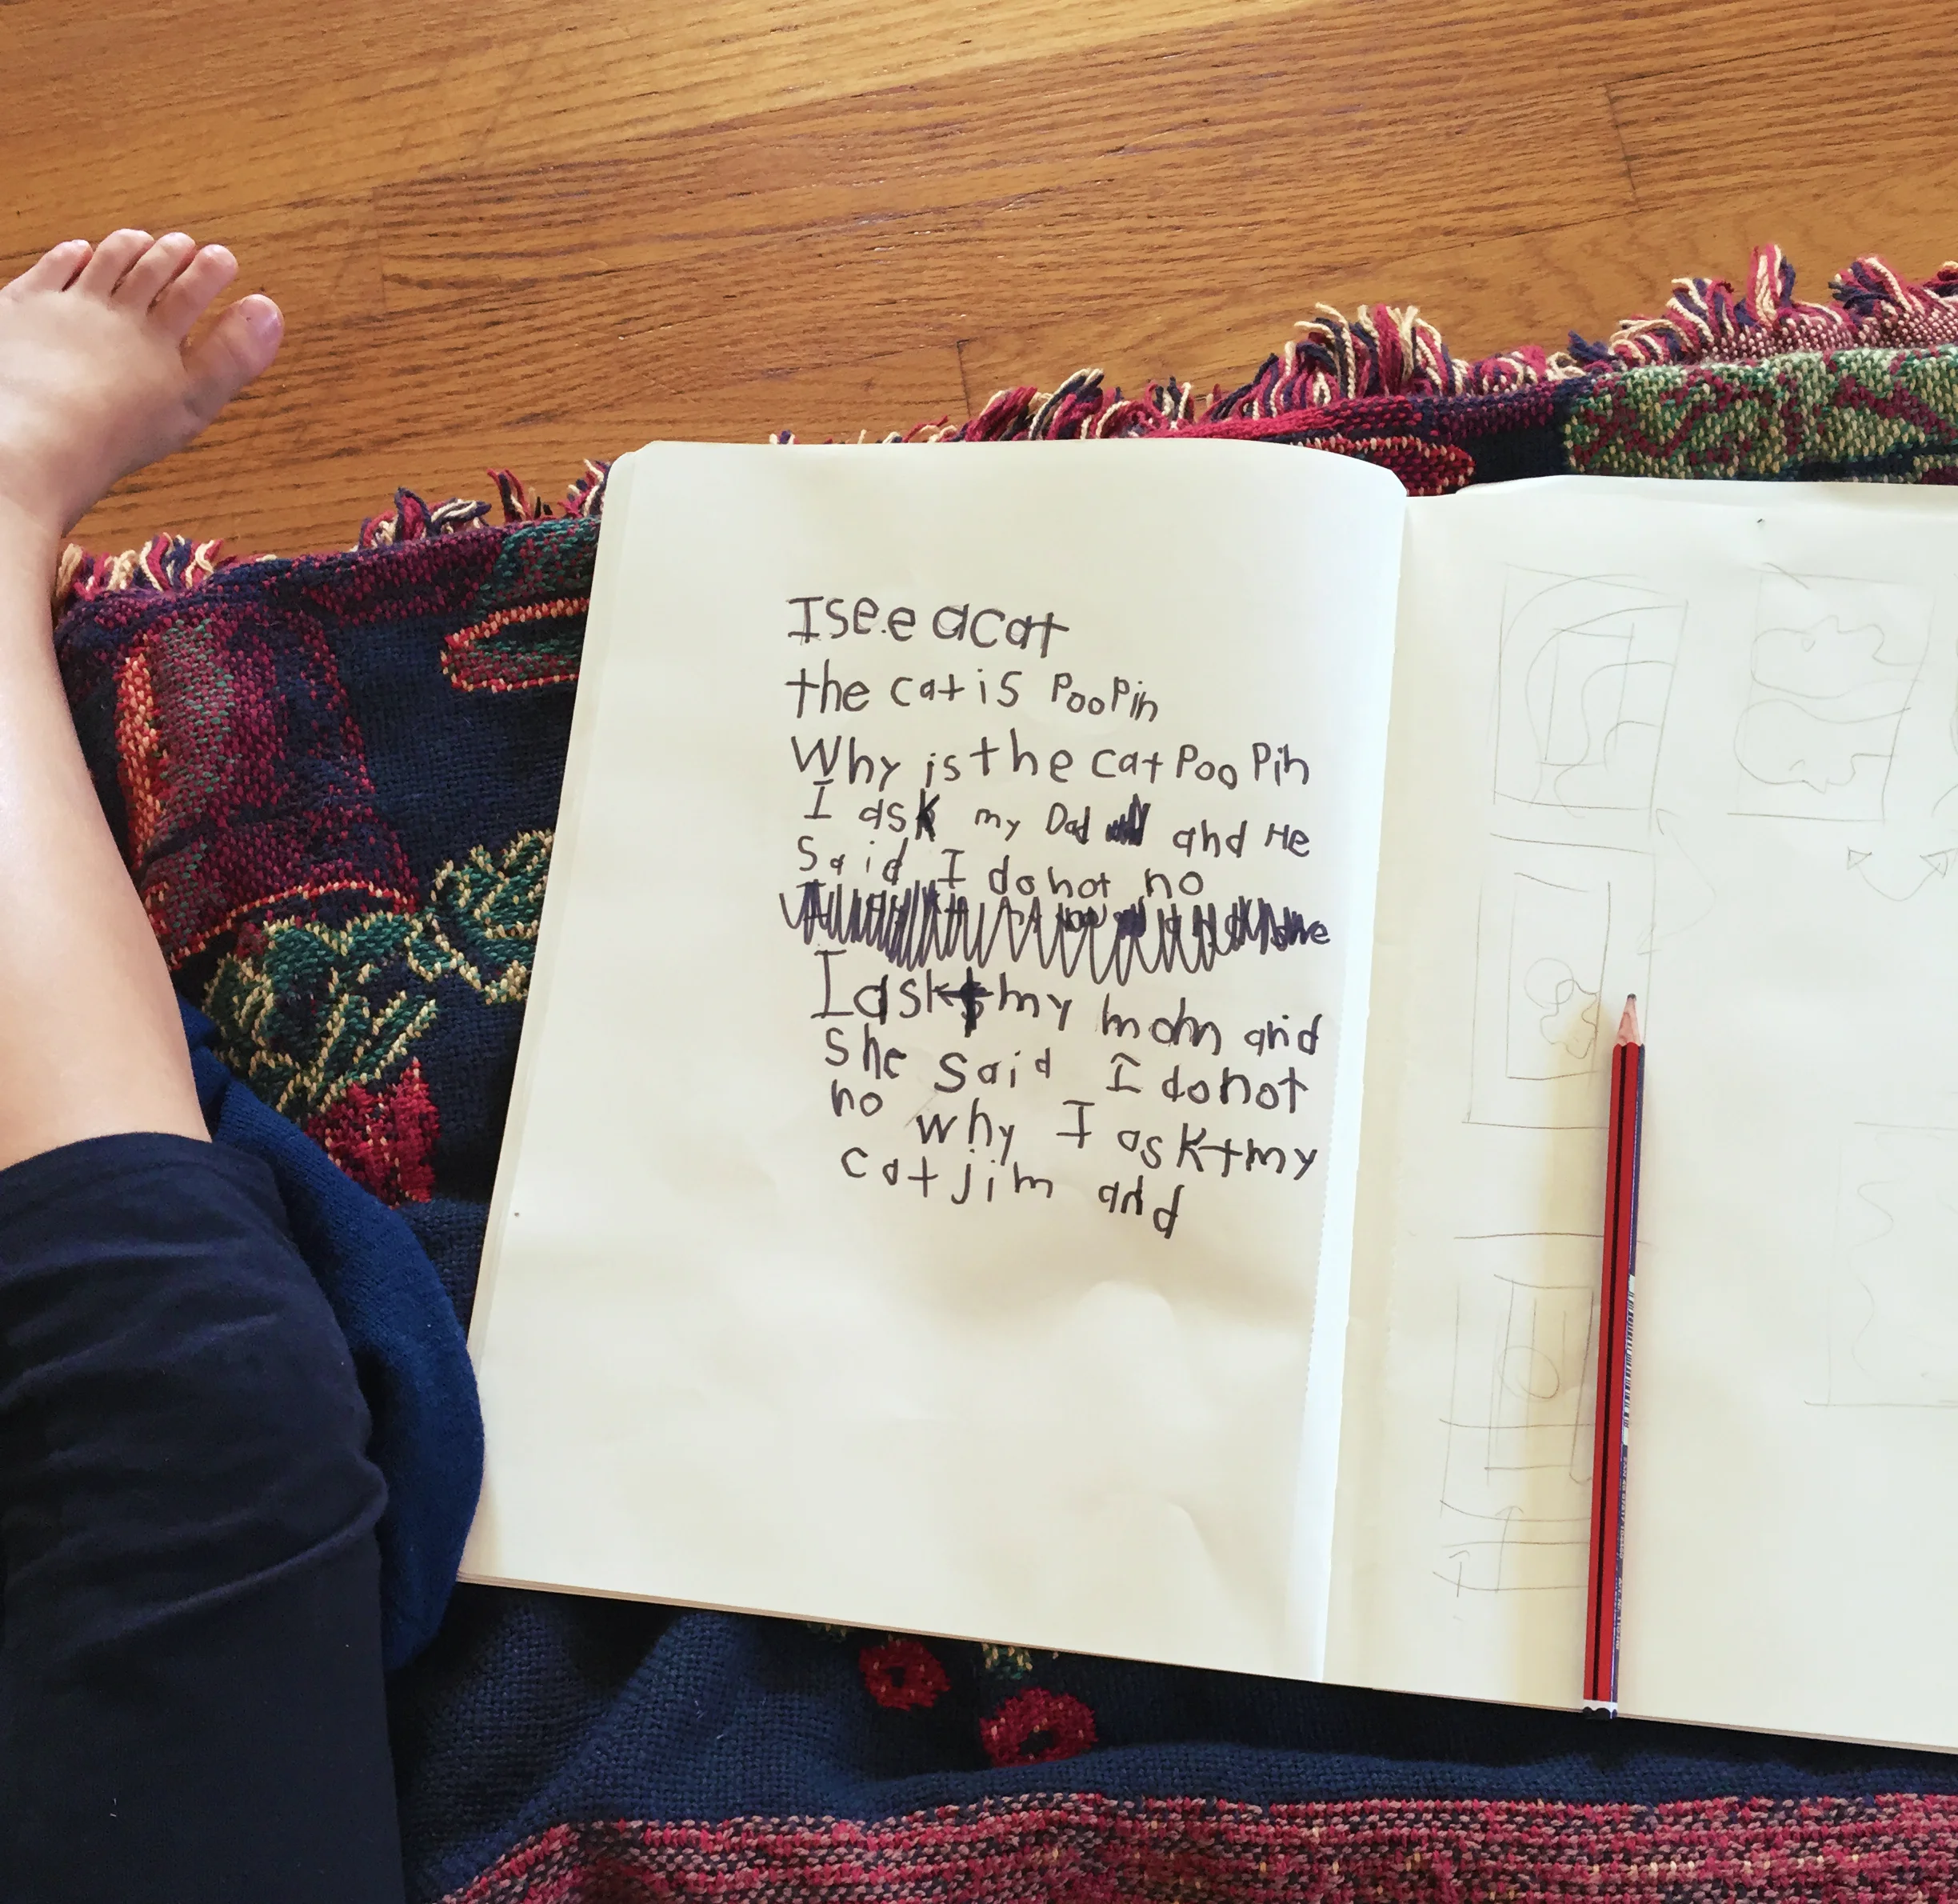 I see a cat
the cat is PooPin
Why is the cat Poo Pin
I ask my Dad and He
Said I do not no
I askt my mom and
She Said I do not
no why I askt my
cat jim and